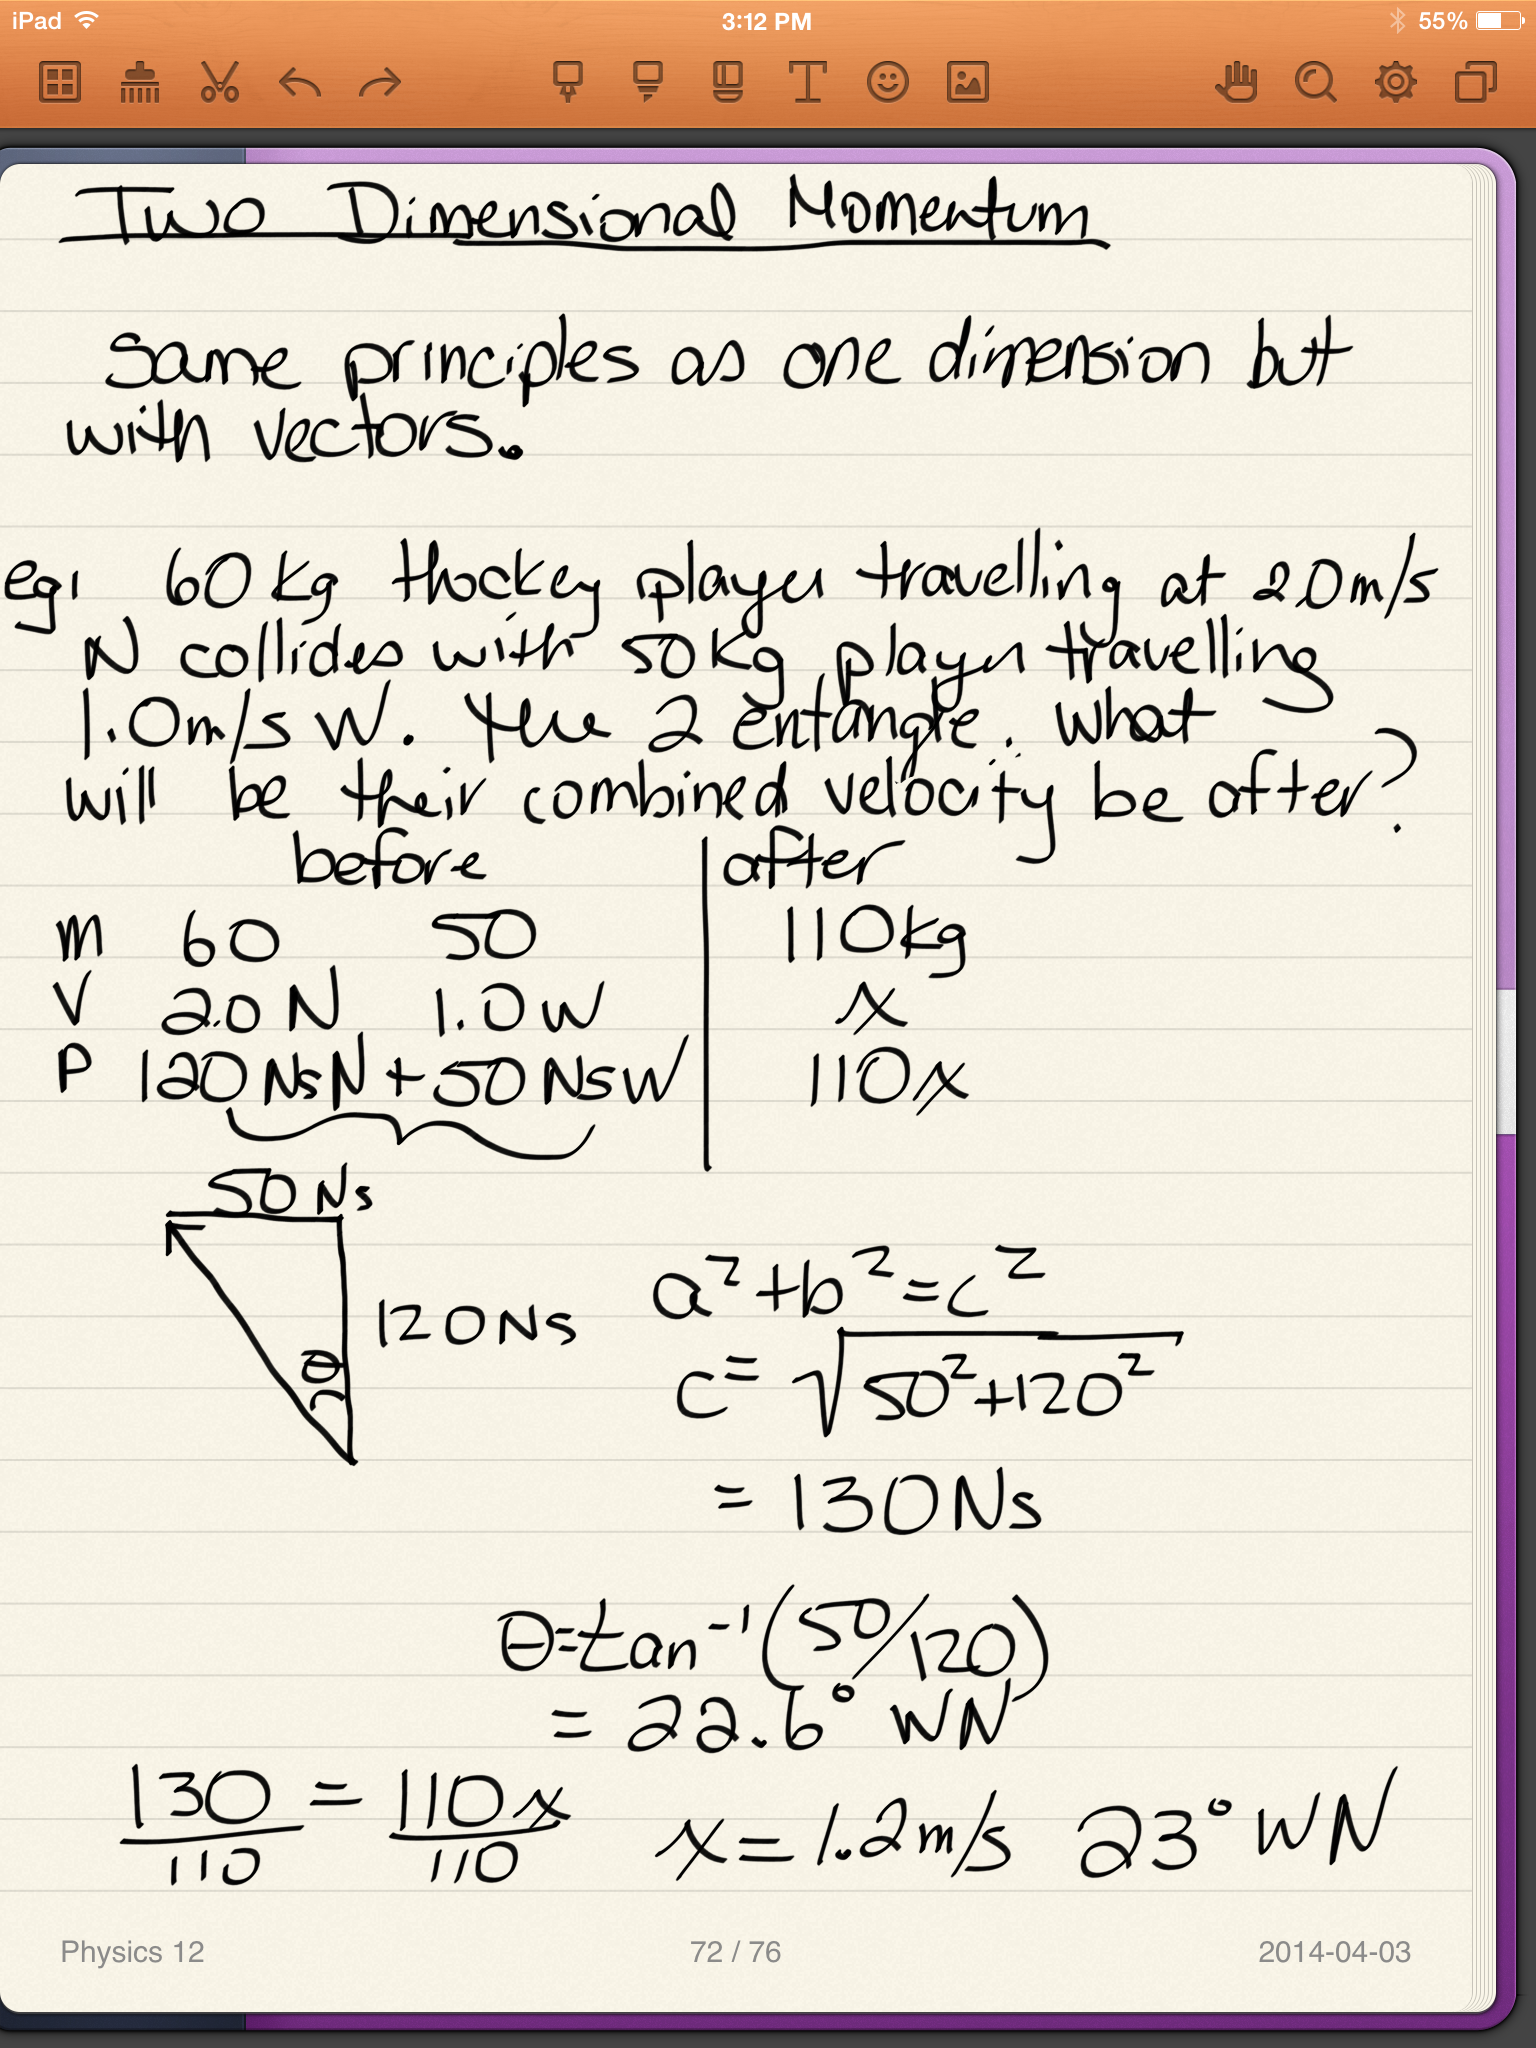 iPad 3:12 PM 55%
Two Dimensional Momentum
Same principles as one dimension but
with vectors.
eg: 60 kg hockey player travelling at 2.0 m/s
N collides with 50 kg player travelling
1.0 m/s W. The 2 entangle. What
will be their combined velocity be after?
before after
m 60 50 110 kg
V 2.0 N 1.0 W x
P 120 Ns N + 50 Ns W 110x
50 Ns
120 Ns
θ
a² + b² = c²
c = √50² + 120²
= 130 Ns
θ = tan⁻¹(50/120)
= 22.6° WN
130/110 = 110x/110 x = 1.2 m/s 23° WN
Physics 12 72 / 76 2014-04-03